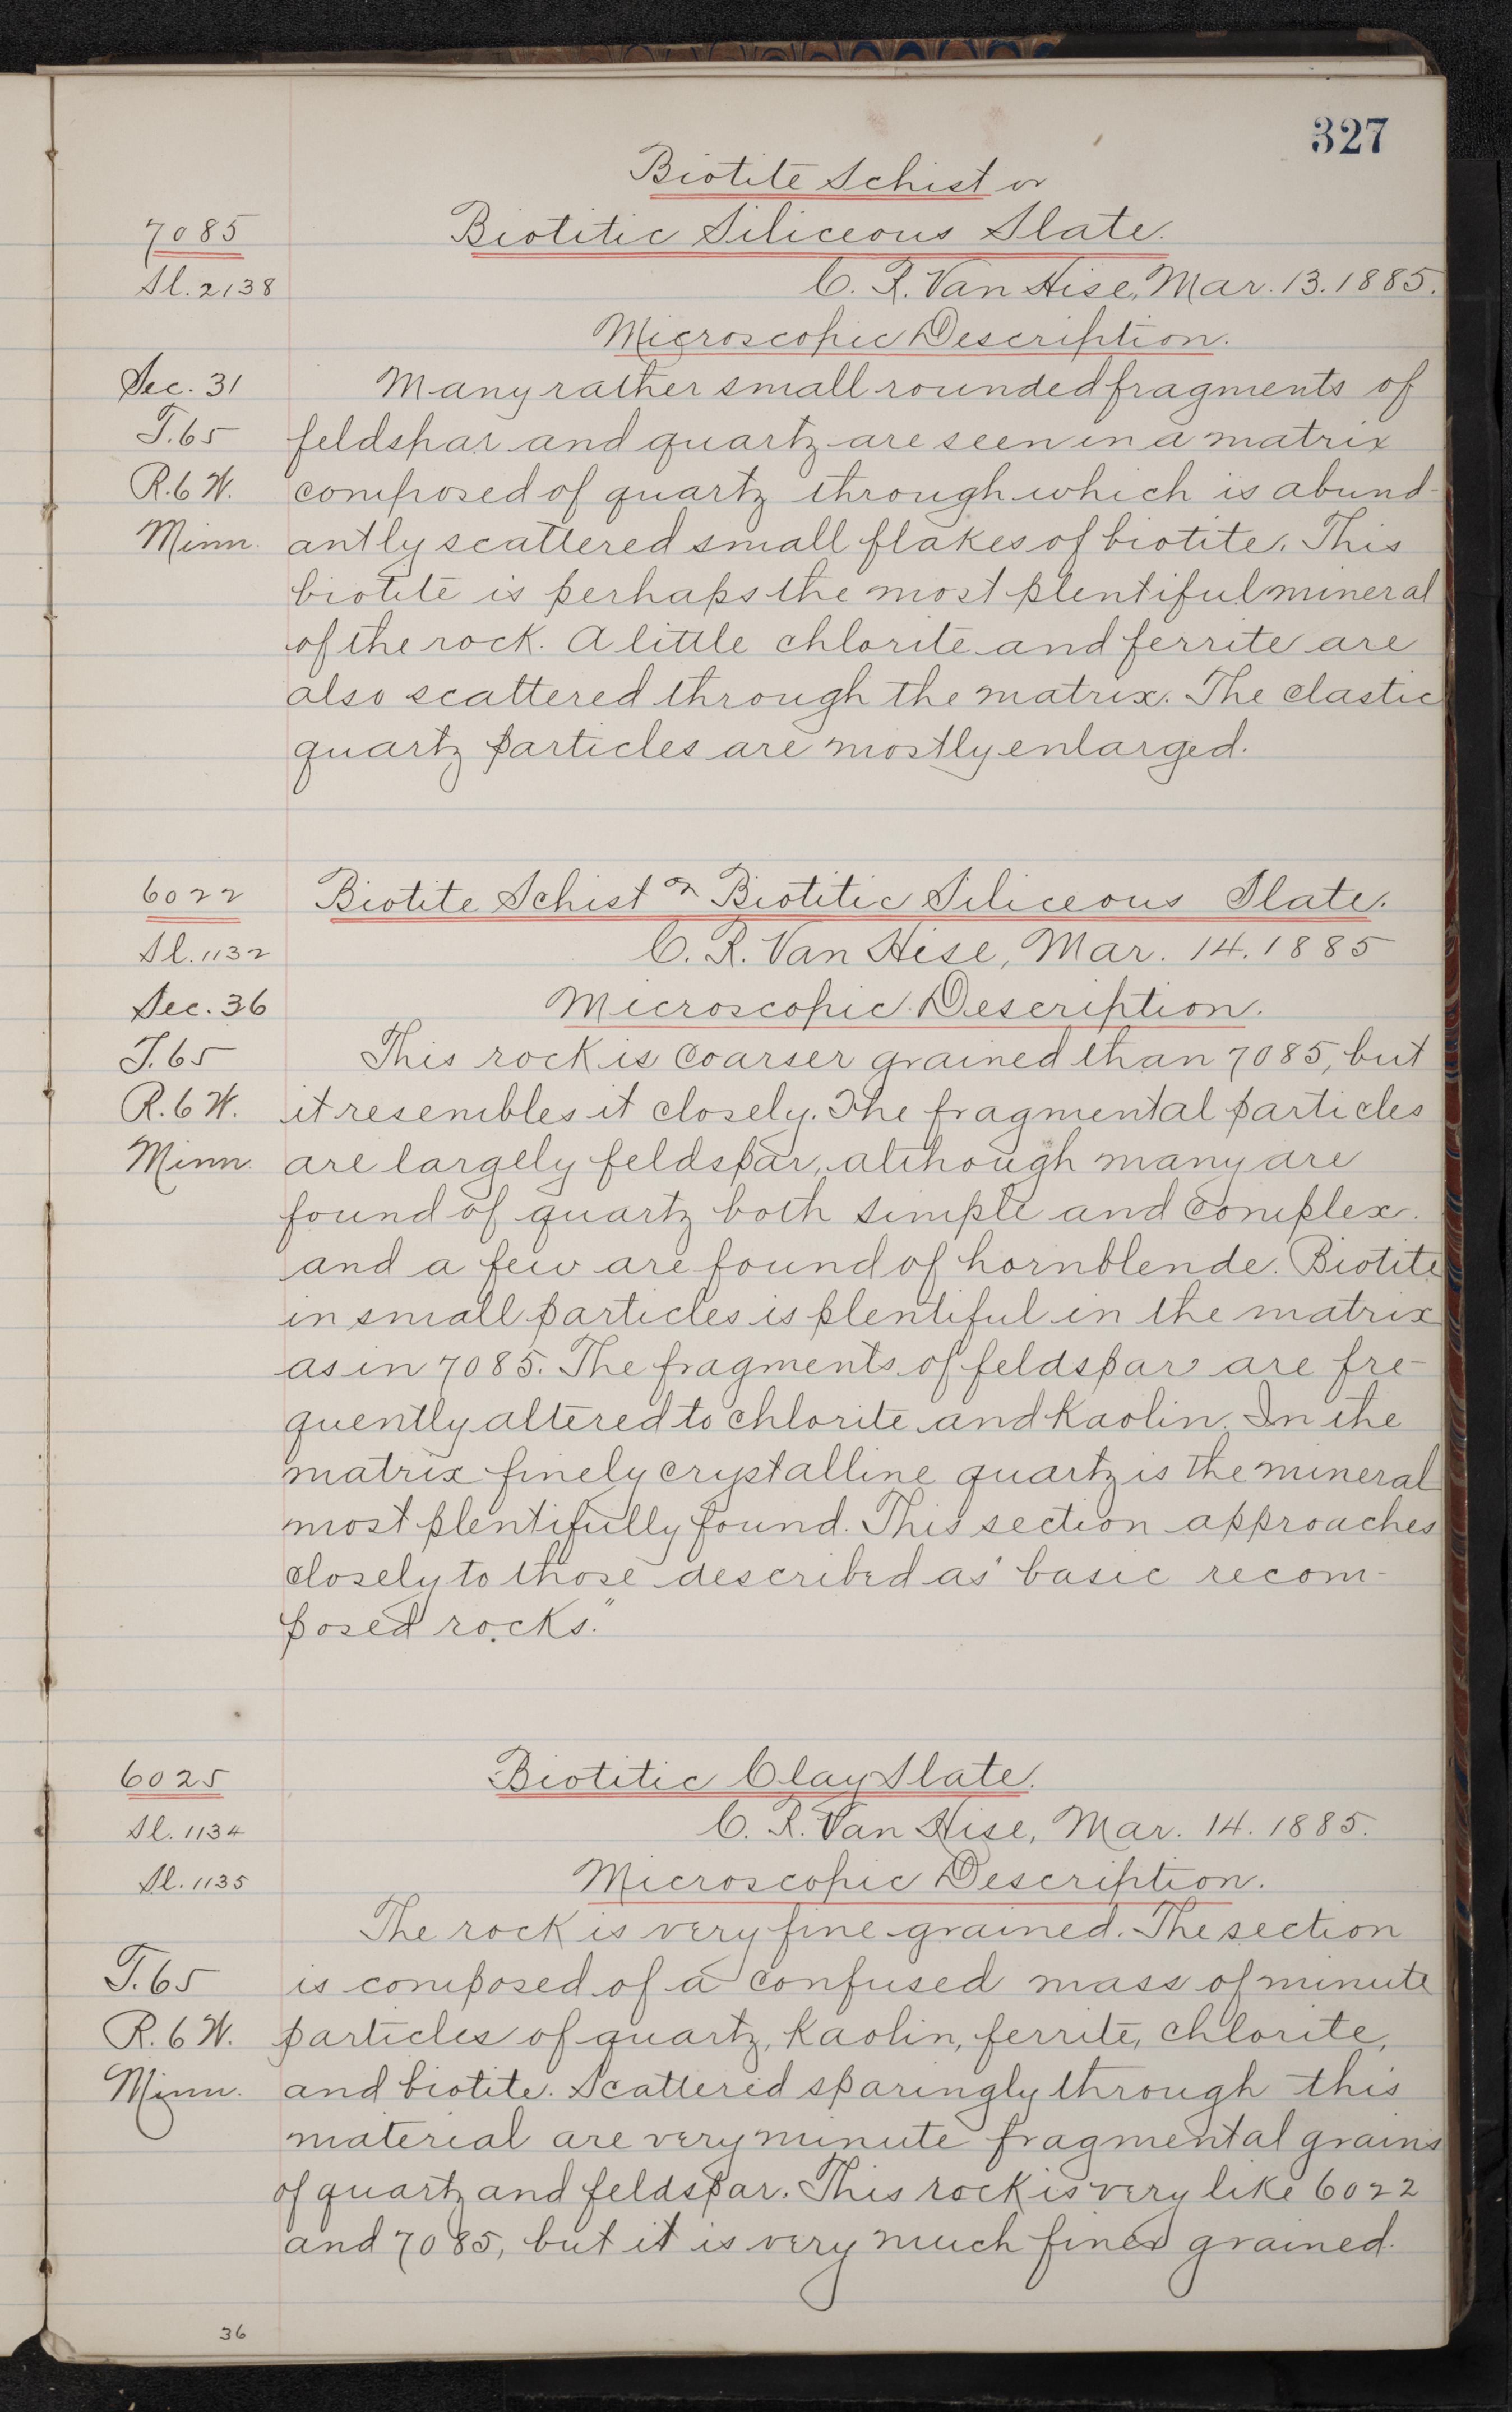 327
Biotite Schist or
7085 Biotitic Siliceous Slate.
Sl. 2138 C. R. Van Hise, Mar. 13. 1885.
Microscopic Description.
Sec. 31 Many rather small rounded fragments of
T. 65 feldspar and quartz are seen in a matrix
R. 6 W. composed of quartz through which is abund-
Minn. antly scattered small flakes of biotite. This
biotite is perhaps the most plentiful mineral
of the rock. A little chlorite and ferrite are
also scattered through the matrix. The clastic
quartz particles are mostly enlarged.
6022 Biotite Schist or Biotitic Siliceous Slate.
Sl. 1132 C. R. Van Hise, Mar. 14. 1885
Sec. 36 Microscopic Description.
T. 65 This rock is coarser grained than 7085, but
R. 6 W. it resembles it closely. The fragmental particles
Minn. are largely feldspar, although many are
found of quartz both simple and complex.
and a few are found of hornblende. Biotite
in small particles is plentiful in the matrix
as in 7085. The fragments of feldspar are fre-
quently altered to chlorite and kaolin. In the
matrix finely crystalline quartz is the mineral
most plentifully found. This section approaches
closely to those described as "basic recom-
posed rocks."
6025 Biotitic Clay Slate.
Sl. 1134 C. R. Van Hise, Mar. 14. 1885.
Sl. 1135 Microscopic Description.
The rock is very fine grained. The section
T. 65 is composed of a confused mass of minute
R. 6 W. particles of quartz, kaolin, ferrite, chlorite,
Minn. and biotite. Scattered sparingly through this
material are very minute fragmental grains
of quartz and feldspar. This rock is very like 6022
and 7085, but it is very much finer grained.
36